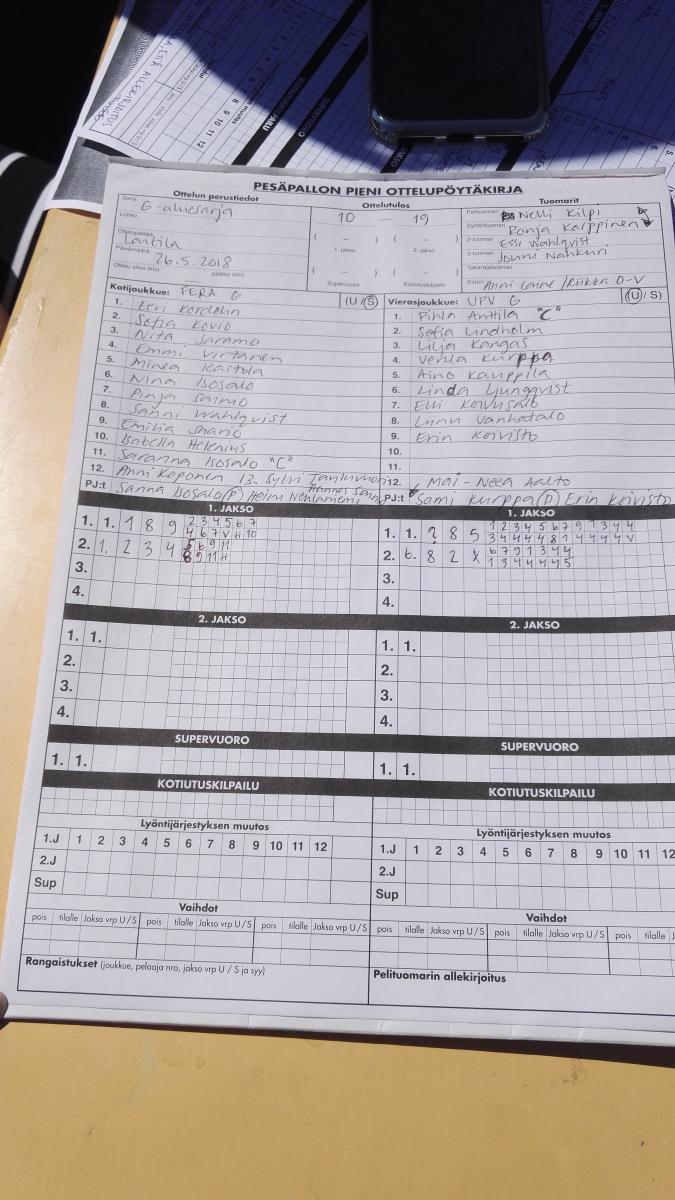 PESÄPALLON PIENI OTTELUPÖYTÄKIRJA
Ottelun perustiedot
Sarja G-aluesarja
Lohko
Ottelupaikka Lantila
Päivämäärä 26.5.2018
Ottelu alkoi (klo) päättyi (klo)
Ottelutulos
10 — 19
( – ) ( – )
1. jakso 2. jakso
( – ) ( – )
Supervuoro Kotiutuskilpailu
Tuomarit
Pelituomari Nelli Kilpi
Syöttötuomari Ronja Karppinen
2-tuomari Essi Wahlqvist
3-tuomari Jouni Nahkuri
Takarajatuomari
Kirjuri Anni Laine / Riikka O-V
Kotijoukkue: PERA G (U/S)
1. Eeri Kordelin
2. Sofia Kovio
3. Nita Saramo
4. Emmi Virtanen
5. Minea Kastola
6. Nina Isosalo
7. Pinja Saimo
8. Sanni Wahlqvist
9. Emilia Saario
10. Isabella Helenius
11. Saranna Isosalo "C"
12. Anni Koponen 13. Sylvi
PJ:t Sanna Isosalo (P) Heini
Vierasjoukkue: UPV G (U/S)
1. Pihla Anttila "C"
2. Sofia Lindholm
3. Lilja Kangas
4. Venla Kurppa
5. Aino Kauppila
6. Linda Ljungqvist
7. Elli Koivusalo
8. Liinu Vanhatalo
9. Erin Koivisto
10.
11.
12. Mai-Neea Aalto
PJ:t Sami Kurppa (P) Erin Koivisto
1. JAKSO
1. 1. 1 8 9 2 3 4 5 6 7
4 6 7 V H 10
2. 1. 2 3 4 5 6 9 11
8 9 11 H
3.
4.
2. JAKSO
1. 1.
2.
3.
4.
SUPERVUORO
1. 1.
KOTIUTUSKILPAILU
Lyöntijärjestyksen muutos
1.J 1 2 3 4 5 6 7 8 9 10 11 12
2.J
Sup
Vaihdot
pois tilalle Jakso vrp U/S pois tilalle Jakso vrp U/S pois tilalle Jakso vrp U/S
Rangaistukset (joukkue, pelaaja nro, jakso vrp U / S ja syy)
1. JAKSO
1. 1. ? 8 5 1 2 3 4 5 6 7 9 1 3 4 4
3 4 4 4 4 8 1 4 4 4 4 V
2. 6. 8 2 X 6 7 9 1 3 4 4
1 3 4 4 4 4 5
3.
4.
2. JAKSO
1. 1.
2.
3.
4.
SUPERVUORO
1. 1.
KOTIUTUSKILPAILU
Lyöntijärjestyksen muutos
1.J 1 2 3 4 5 6 7 8 9 10 11 12
2.J
Sup
Vaihdot
pois tilalle Jakso vrp U/S pois tilalle Jakso vrp U/S pois tilalle
Pelituomarin allekirjoitus